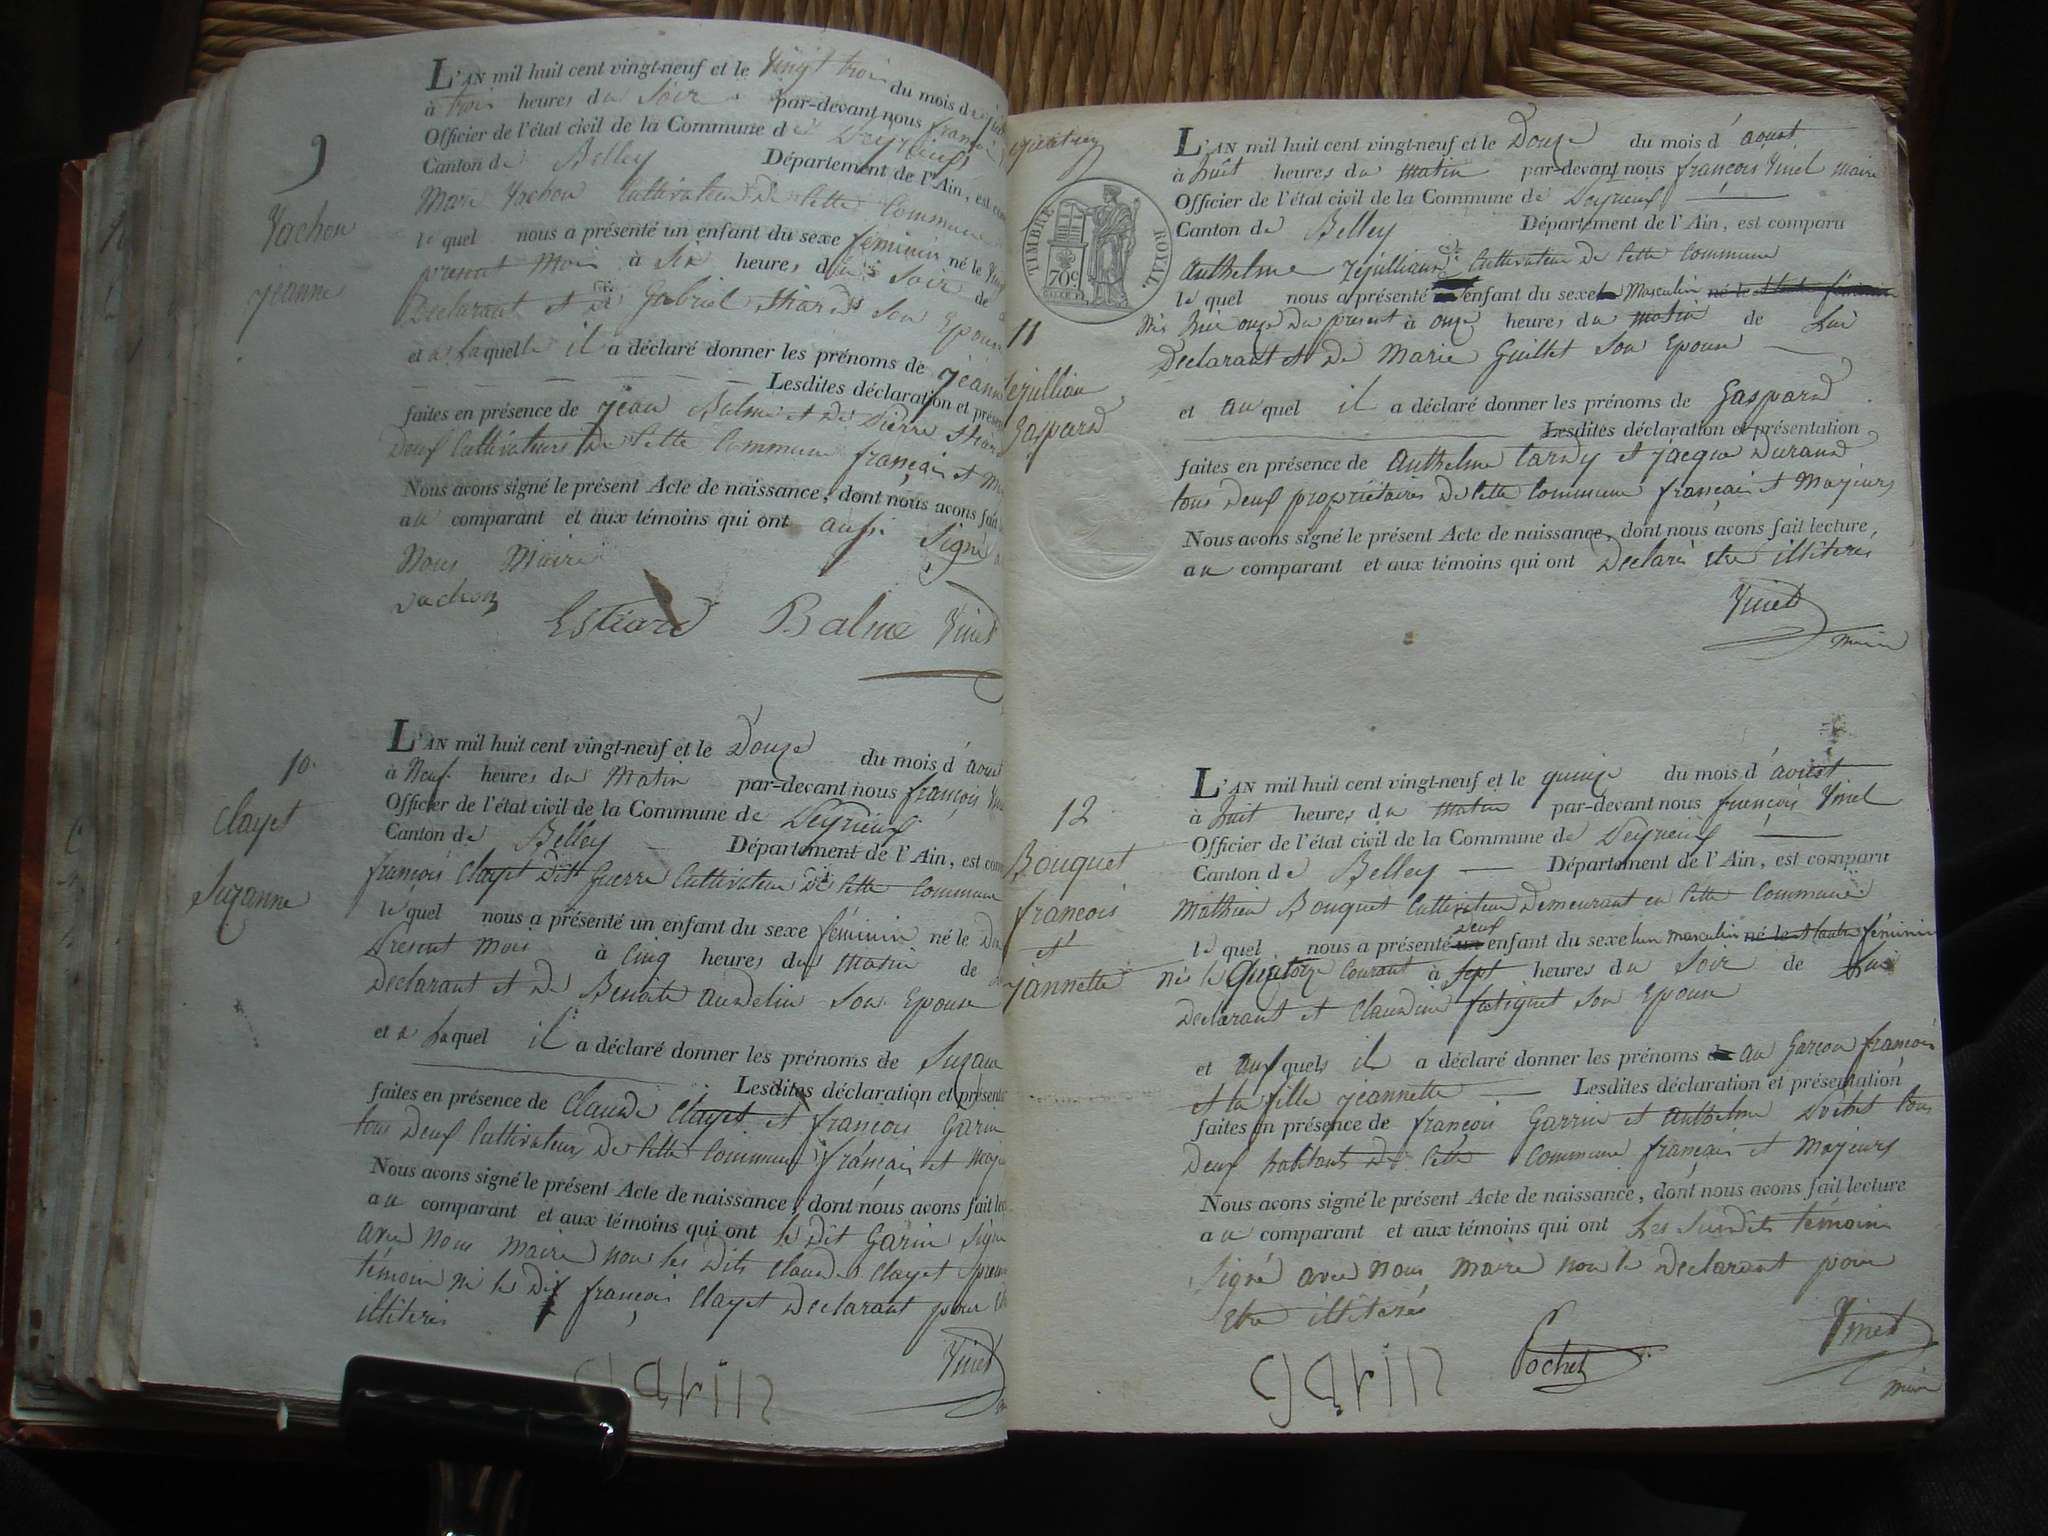 9
Vachon
jeanne
L'AN mil huit cent vingt-neuf et le Vingt trois du mois de
à trois heures du Soir par-devant nous françois
Officier de l'état civil de la Commune de Peyrieux
Canton de Belley Département de l'Ain, est
Marc Vachon Cultivateur De Cette Commune
le quel nous a présenté un enfant du sexe féminin né le
present mois à Six heures du Soir de
Declarant et de Gabriel son Epouse
et a laquelle il a déclaré donner les prénoms de jeanne
Lesdites déclaration et
faites en présence de jean Balme et De Pierre
Deux Cultivateurs De Cette Commune français et
Nous avons signé le présent Acte de naissance, dont nous avons fait
au comparant et aux témoins qui ont aussi Signé
Nous Maire
Vachon
Estiard Balme Vinet
10.
Clayet
Suzanne
L'AN mil huit cent vingt-neuf et le Douze du mois d'aoust
à Neuf heures du Matin par-devant nous françois
Officier de l'état civil de la Commune de Peyrieux
Canton de Belley Département de l'Ain, est
françois Clayet dit Guerre Cultivateur de Cette Commune
le quel nous a présenté un enfant du sexe féminin né le
Present mois à Cinq heures du matin de
Declarant et De Benoite Son Epouse
et a laquel il a déclaré donner les prénoms de
Lesdites déclaration et
faites en présence de Claude Clayet et françois Garin
tous Deux Cultivateurs De Cette Commune français et
Nous avons signé le présent Acte de naissance, dont nous avons fait
au comparant et aux témoins qui ont le dit Garin Signé
avec Nous maire non les Dits Claude Clayet
témoin ni le Dit françois Clayet Declarant pour
illiteris
garin Vinet
TIMBRE ROYAL
70c
11
Tejullian
Gaspard
L'AN mil huit cent vingt-neuf et le Douze du mois d'aoust
à huit heures du matin par-devant nous françois Vinet maire
Officier de l'état civil de la Commune de Peyrieux
Canton de Belley Département de l'Ain, est comparu
Anthelme Tejullian Cultivateur De Cette Commune
le quel nous a présenté un enfant du sexe Masculin né le et l'autre féminin
Nés hier onze du présent à onze heures du matin de Lui
Declarant et De Marie Guillet Son Epouse
et auquel il a déclaré donner les prénoms de Gaspard
Lesdites déclaration et présentation
faites en présence de Anthelme tardy et jacque Durand
tous deux propriétaires De Cette Commune français et Majeurs
Nous avons signé le présent Acte de naissance, dont nous avons fait lecture,
au comparant et aux témoins qui ont Declaré etre illiteré
Vinet
maire
12
Bouquet
francois
et
jannette
L'AN mil huit cent vingt-neuf et le quinze du mois d'aoust
à huit heures du matin par-devant nous françois Vinet
Officier de l'état civil de la Commune de Peyrieux
Canton de Belley Département de l'Ain, est comparu
Mathieu Bouquet Cultivateur Demeurant en Cette Commune
le quel nous a présenté un deux enfant du sexe lun masculin né le et lautre féminin
Nés le Quatorze Courant à Sept heures du Soir de Lui
Declarant et Claudine fatiguet Son Epouse
et aux quels il a déclaré donner les prénoms de au Garcon françois
et la fille jeannette Lesdites déclaration et présentation
faites en présence de françois Garrin et Anthelme Pochet tous
Deux habitants De Cette Commune français et Majeurs
Nous avons signé le présent Acte de naissance, dont nous avons fait lecture
au comparant et aux témoins qui ont Les Susdits témoins
Signé avec Nous maire non le Declarant pour
Etre illiteré
garin Pochet Vinet
maire